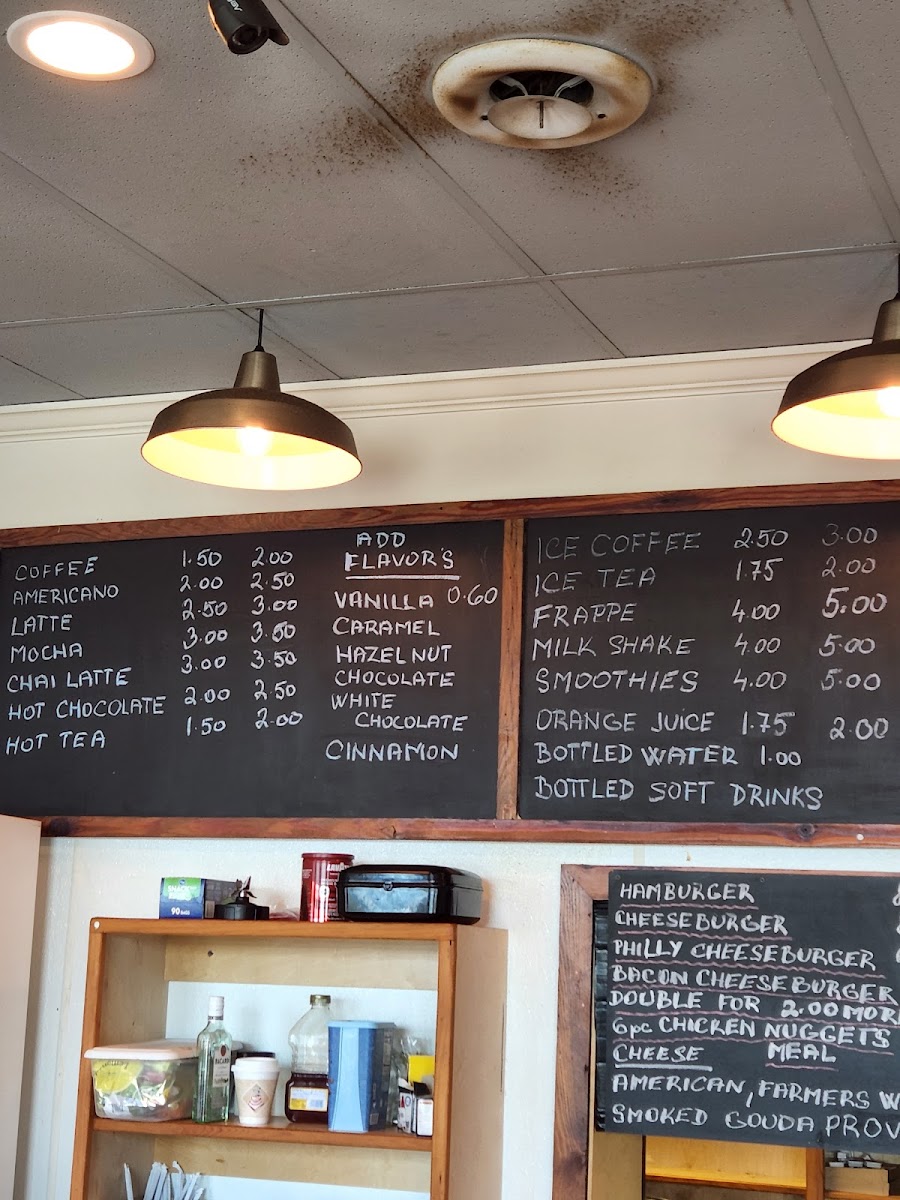 COFFEE 1.50 2.00
AMERICANO 2.00 2.50
LATTE 2.50 3.00
MOCHA 3.00 3.50
CHAI LATTE 3.00 3.50
HOT CHOCOLATE 2.00 2.50
HOT TEA 1.50 2.00
ADD
FLAVOR'S
VANILLA 0.60
CARAMEL
HAZELNUT
CHOCOLATE
WHITE
CHOCOLATE
CINNAMON
ICE COFFEE 2.50 3.00
ICE TEA 1.75 2.00
FRAPPE 4.00 5.00
MILK SHAKE 4.00 5.00
SMOOTHIES 4.00 5.00
ORANGE JUICE 1.75 2.00
BOTTLED WATER 1.00
BOTTLED SOFT DRINKS
HAMBURGER
CHEESEBURGER
PHILLY CHEESEBURGER
BACON CHEESEBURGER
DOUBLE FOR 2.00 MOR
6pc CHICKEN NUGGETS
MEAL
CHEESE
AMERICAN, FARMERS W
SMOKED GOUDA PROV
90
BACARDI